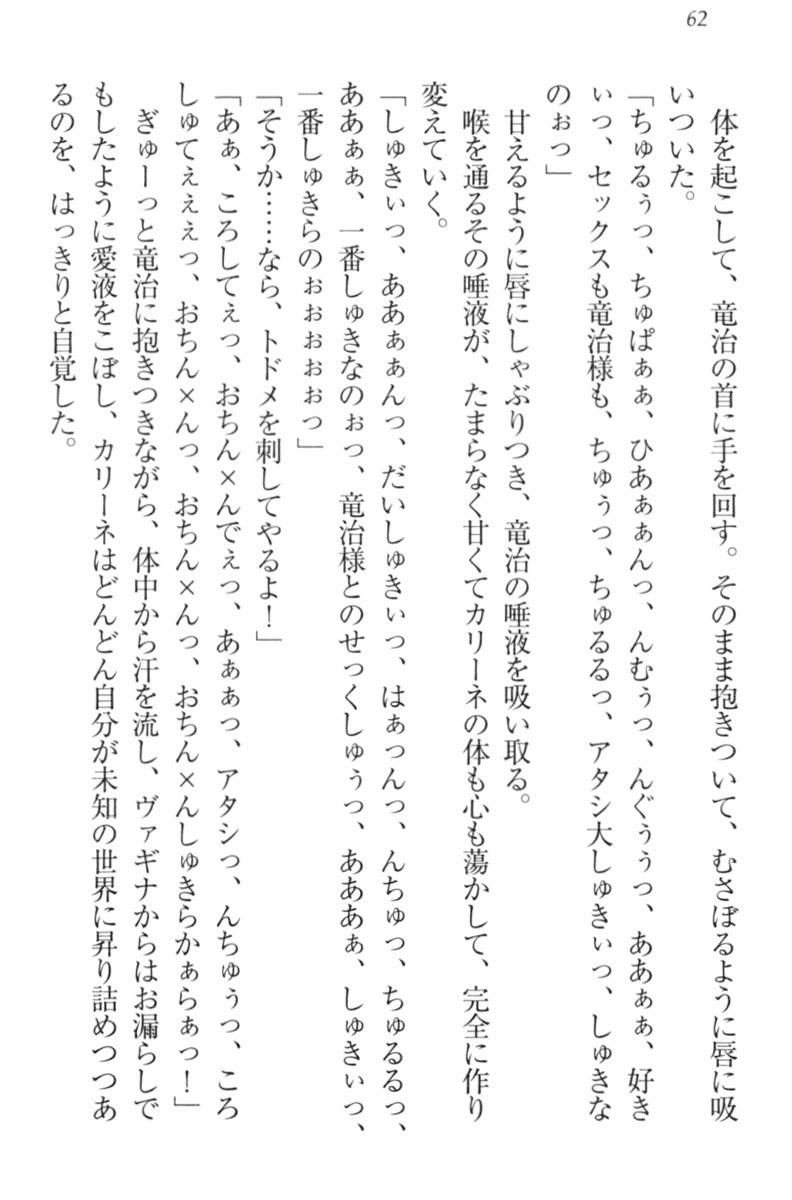 62
　体を起こして、竜治の首に手を回す。そのまま抱きついて、むさぼるように唇に吸
いついた。
「ちゅるぅっ、ちゅぱぁぁ、ひあぁぁんっ、んむぅっ、んぐぅぅっ、ああぁぁ、好き
ぃっ、セックスも竜治様も、ちゅぅっ、ちゅるるっ、アタシ大しゅきぃっ、しゅきな
のぉっ」
　甘えるように唇にしゃぶりつき、竜治の唾液を吸い取る。
　喉を通るその唾液が、たまらなく甘くてカリーネの体も心も蕩かして、完全に作り
変えていく。
「しゅきぃっ、ああぁぁんっ、だいしゅきぃっ、はぁっんっ、んちゅっ、ちゅるるっ、
ああぁぁ、一番しゅきなのぉっ、竜治様とのせっくしゅぅっ、あああぁ、しゅきぃっ、
一番しゅきらのぉぉぉぉぉっ」
「そうか……なら、トドメを刺してやるよ！」
「あぁ、ころしてぇっ、おちん×んでぇっ、あぁぁっ、アタシっ、んちゅぅっ、ころ
しゅてぇぇぇっ、おちん×んっ、おちん×んっ、おちん×んしゅきらかぁらぁっ！」
　ぎゅーっと竜治に抱きつきながら、体中から汗を流し、ヴァギナからはお漏らしで
もしたように愛液をこぼし、カリーネはどんどん自分が未知の世界に昇り詰めつつあ
るのを、はっきりと自覚した。